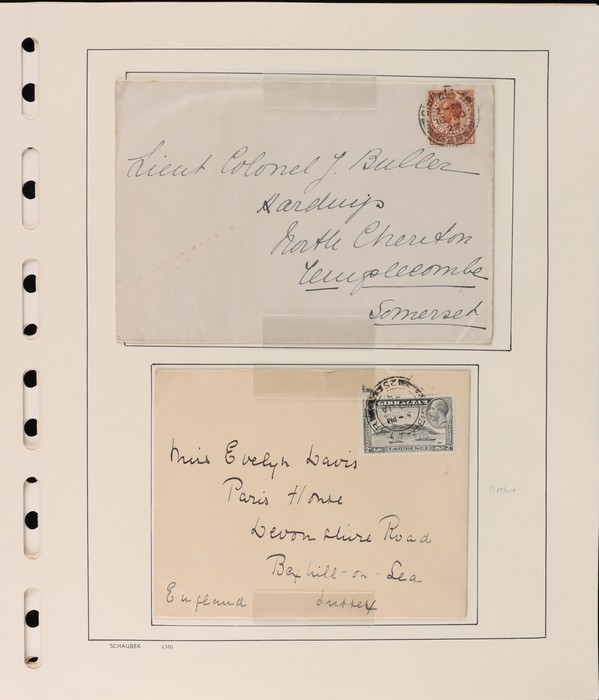 Lieut Colonel J. Buller
North Cheriton
Templecombe
Somerset
TWO PENCE
Miss Evelyn Davis
Paris House
Devonshire Road
Bexhill-on-Sea
England Sussex
SCHAUBEK (50)